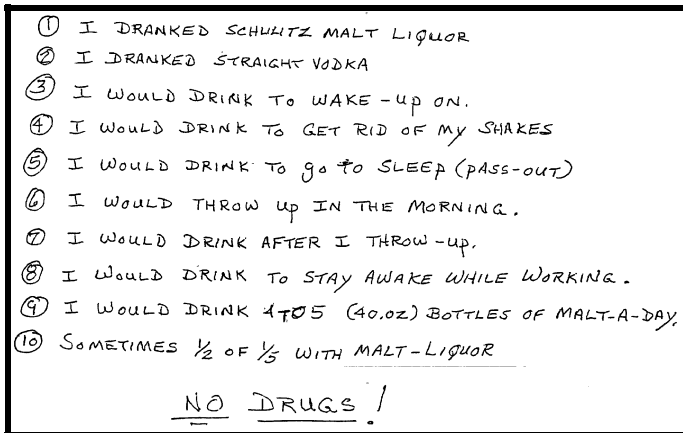 ① I DRANKED SCHULITZ MALT LIQUOR
② I DRANKED STRAIGHT VODKA
③ I WOULD DRINK TO WAKE-UP ON.
④ I WOULD DRINK TO GET RID OF MY SHAKES
⑤ I WOULD DRINK TO go to SLEEP (PASS-OUT)
⑥ I WOULD THROW UP IN THE MORNING.
⑦ I WOULD DRINK AFTER I THROW-UP.
⑧ I WOULD DRINK TO STAY AWAKE WHILE WORKING.
⑨ I WOULD DRINK 4TO5 (40.OZ) BOTTLES OF MALT-A-DAY.
⑩ SOMETIMES ½ OF ⅕ WITH MALT-LIQUOR
NO DRUGS!